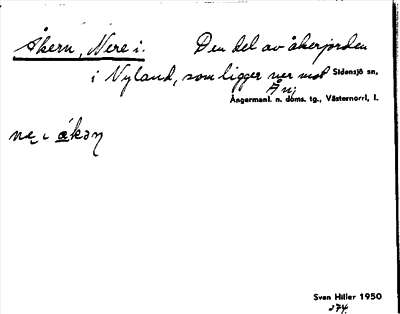 Åkern, Nere i. Den del av åkerjorden
i Nyland, som ligger ner mot Sidensjö sn,
Ån;
Ångermanl. n. doms. tg., Västernorrl, l.
ne̢ i ákəṇ
Sven Hiller 1950
274.